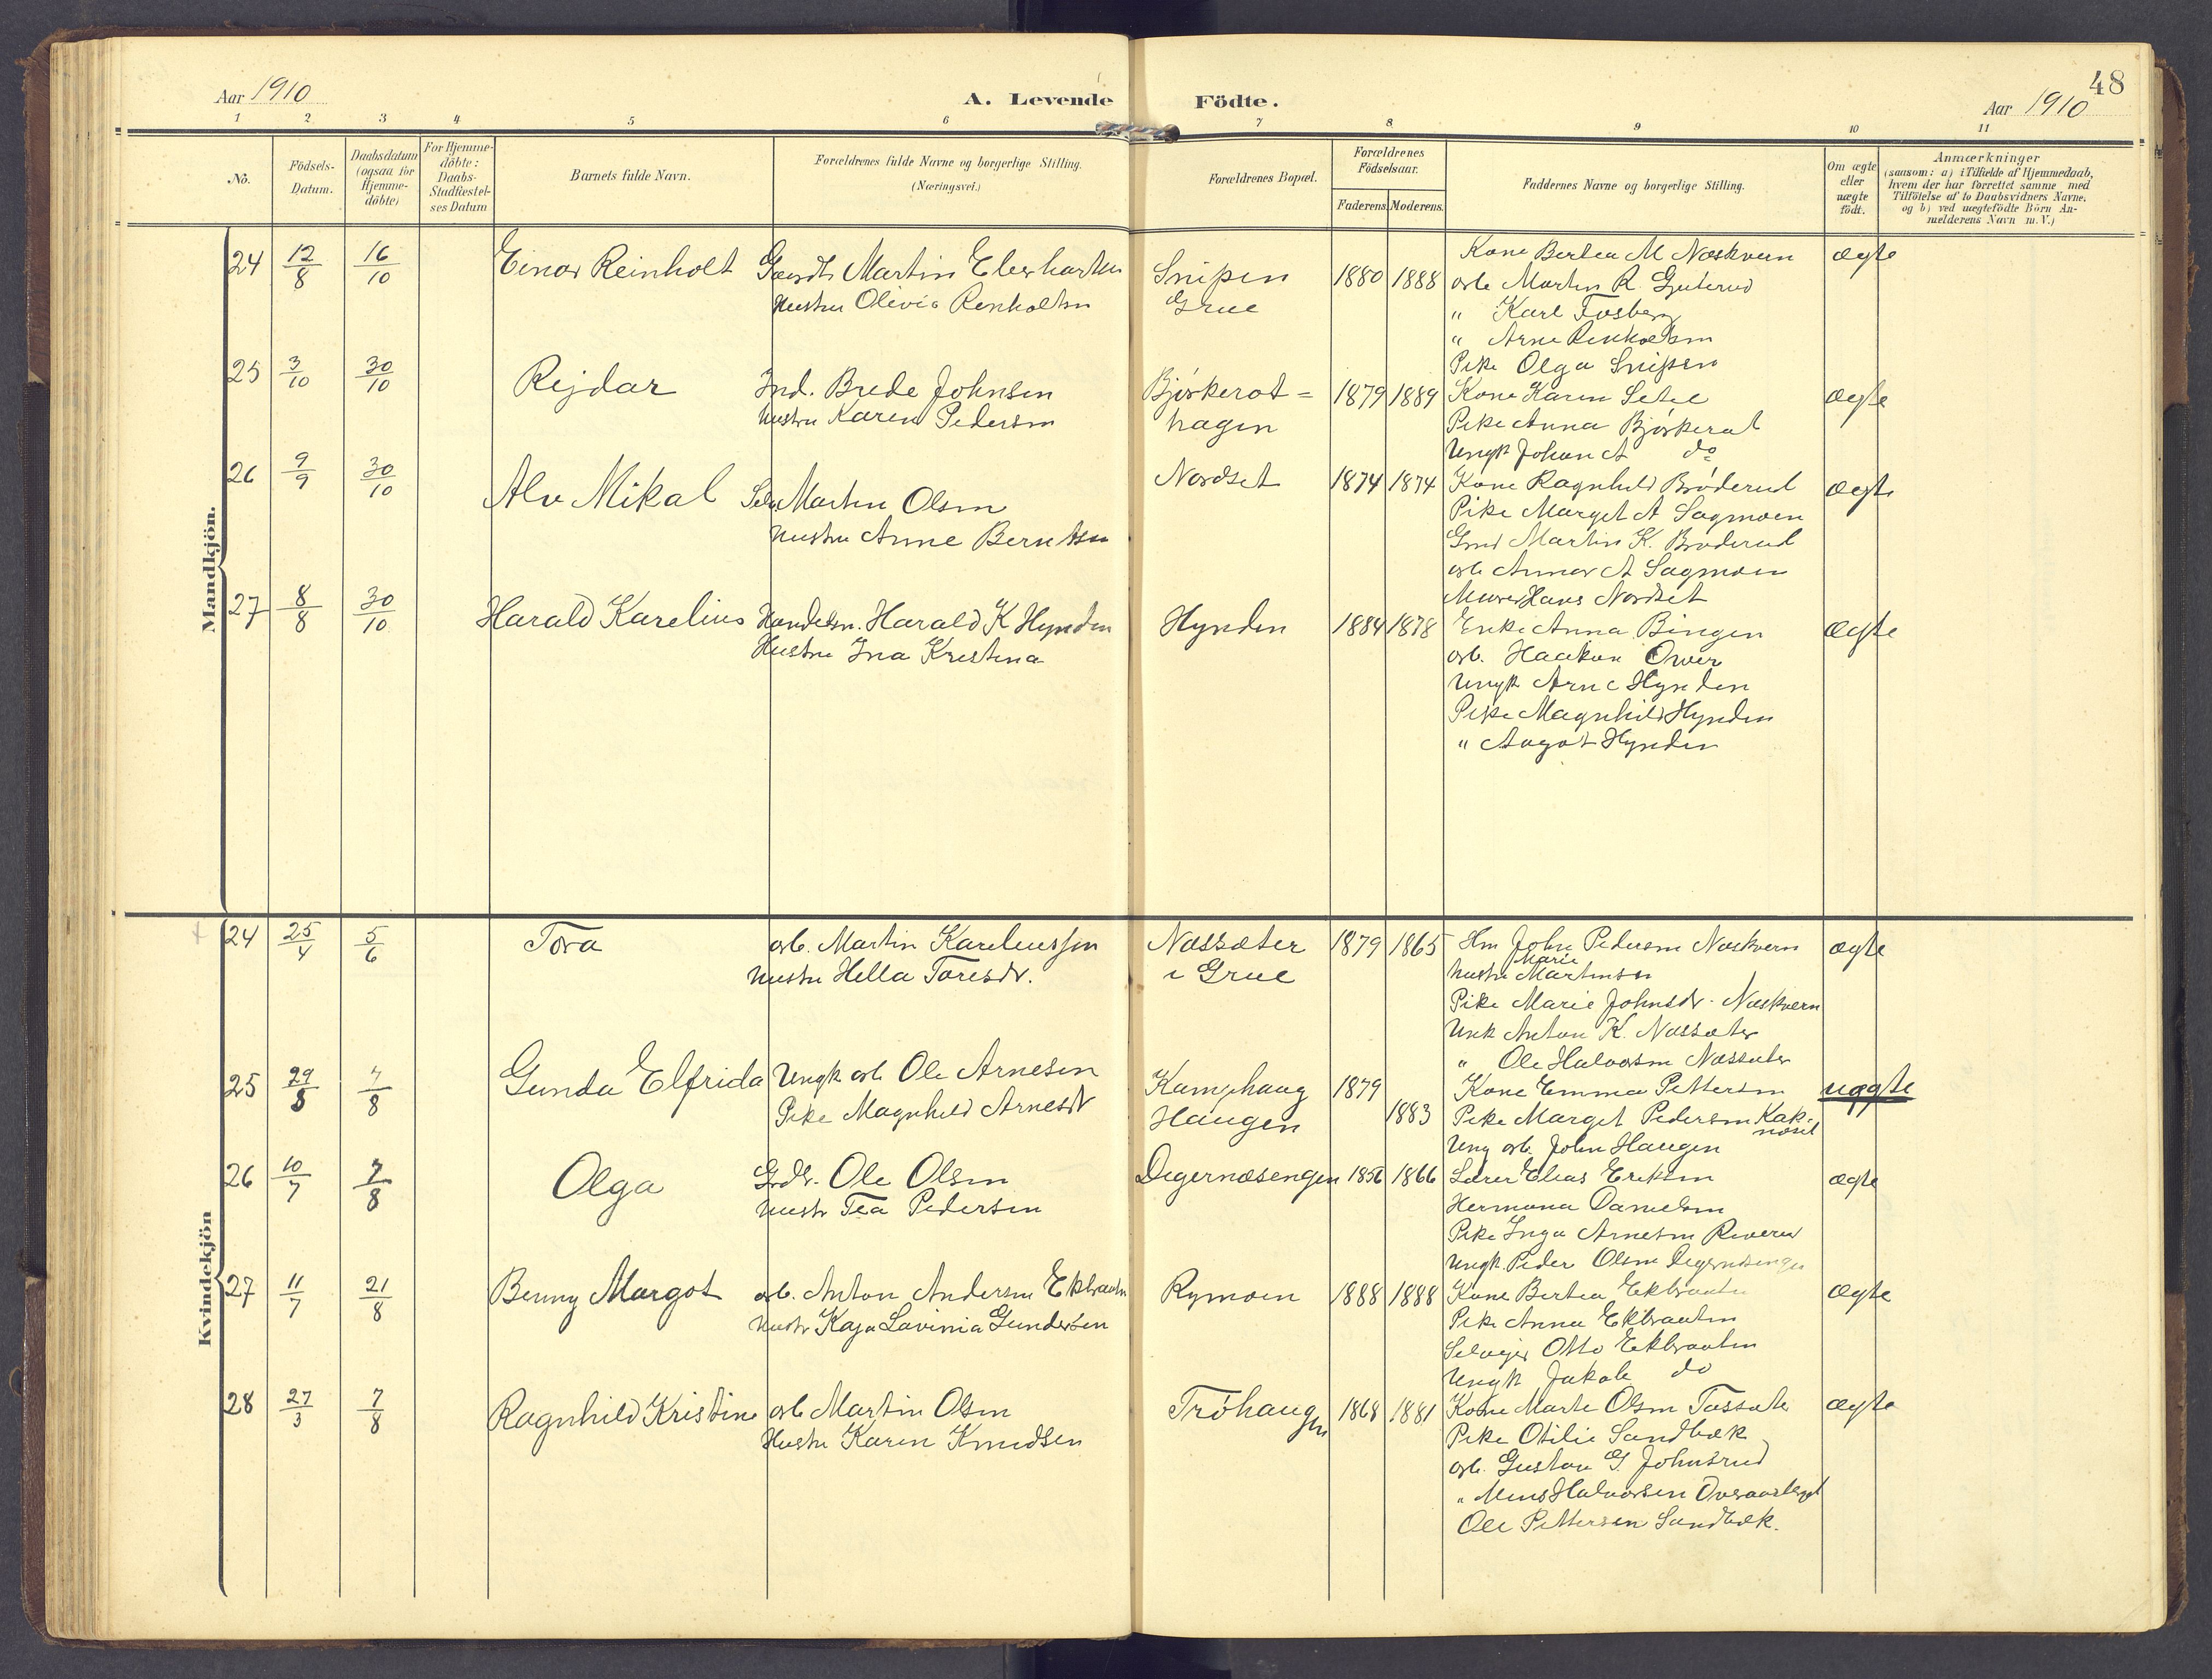 48
Aar 1910
A. Levende Födte.
Aar 1910
1 2 3 4 5 6 7 8 9 10 11
No.
Födsels-
Datum.
Daabsdatum
(ogsaa for
Hjemme-
döbte)
For Hjemme-
döbte:
Daabs-
Stadfæstel-
ses Datum
Barnets fulde Navn.
Forældrenes fulde Navne og borgerlige Stilling.
(Næringsvei.)
Forældrenes Bopæl.
Forældrenes
Födselsaar.
Faderens. Moderens.
Faddernes Navne og borgerlige Stilling.
Om ægte
eller
uægte
födt.
Anmærkninger
(saasom: a) i Tilfælde af Hjemmedaab,
hvem der har forrettet samme med
Tilföielse af to Daabsvidners Navne,
og b) ved uægtefödte Börn An-
melderens Navn m. V.)
Mandkjön.
24 12/8 16/10 Einar Reinholt
Martin Eberhartsen
Hustru Olivia Renholtsn
Snipen
Grue
1880 1888
Kone Bertea M Næskvern
arb Martin R. Gjuterud
" Karl Fosberg
" Arne Renholtsn
Pike Olga Snipen
ægte
25 3/10 30/10 Rejdar
Ind. Brede Johnsen
Hustru Karen Pedersen
Bjørkerot=
hagen
1879 1889
Kone Karen Setre
Pike Anna Bjørkerot
Ungk Johan A do
ægte
26 9/9 30/10 Alv Mikal
Selv Martin Olsen
Hustru Anne Berntsen
Nordset
1874 1874
Kone Ragnhild Brøderud
Pike Marget A Sagmoen
Grnd Martin K. Brøderud
arb Annar A Sagmoen
Murer Hans Nordset
ægte
27 8/8 30/10 Harald Karelius
Handelsm. Harald K Hynden
Hustru Ina Kristina
Hynden
1884 1878
Enke Anna Bingen
arb. Haakon Over
Ungk Arne Hynden
Pike Magnhild Hynden
" Aagot Hynden
ægte
Kvindekjön
24 25/4 5/6 Tora
arb. Martin Kareliussen
Hustru Hella Toresdr.
Næssæter
i Grue
1879 1865
Hm John Pedersen Næskvern
Marie
hustru Martinsen
Pike Marie Johnsdr. Næskvern
Unk Anton K. Næssæter
" Ole Halvorsen Næssæter
ægte
25 29/8 7/8 Gunda Elfrida
Ungk arb Ole Arnesen
Pike Magnhild Arnesdr
Kamphaug
Haugen
1879
1883
Kone Emma Pettersen
Pike Marget Pedersen Kak-
næset
Ung arb. John Haugen
uægte
26 10/7 7/8 Olga
Grdr. Ole Olsen
Hustr Tea Pedersen
Degernæsengen
1856 1866
Lærer Elias Eriksen
Hermana Danielsen
Pike Inga Arnesen Reverud
Ungk. Peder Olsen Degernæsengen
ægte
27 11/7 21/8 Benny Margot
arb. Anton Andersen Ekbraaten
Hustr Kaja Lavinia Gundersen
Rymoen
1888 1888
Kone Bertea Ekbraaten
Pike Anna Ekbraaten
Selveier Otto Ekbraaten
Ungk Jakob do
ægte
28 27/3 7/8 Ragnhild Kristine
arb Martin Olsen
Hustru Karen Knudsen
Trøhaugen
1868 1881
Kone Marte Olsen Tossæter
Pike Otilie Sandbæk
arb. Gustav G. Johnsrud
" Mens Halvorsen Overaasbygd
Ole Pettersen Sandbæk.
ægte